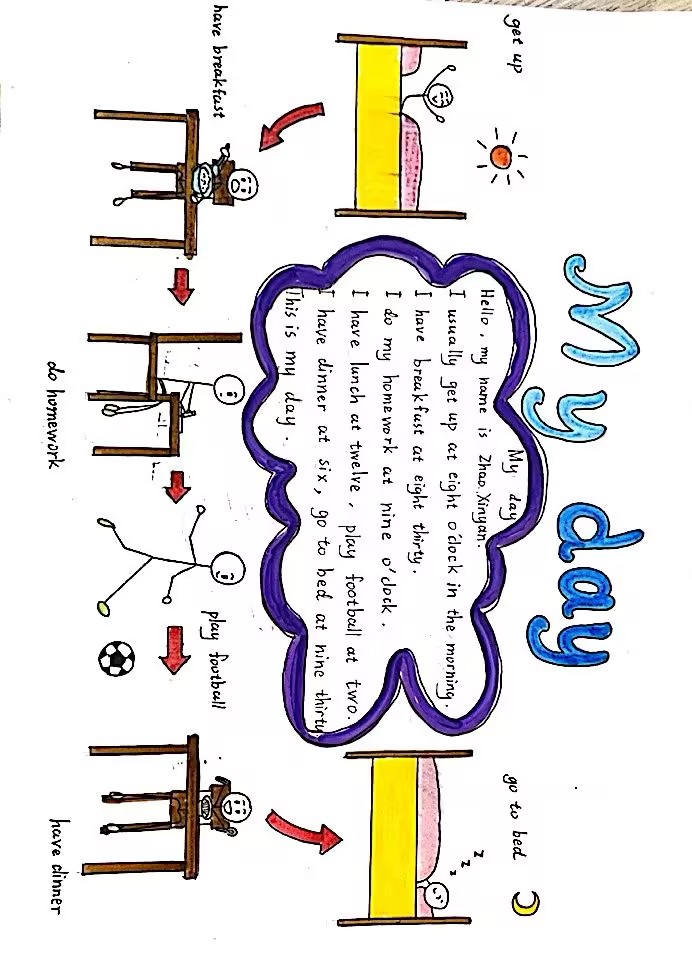 My day
get up
go to bed
My day
Hello, my name is Zhao Xinyan.
I usually get up at eight o'clock in the morning.
I have breakfast at eight thirty.
I do my homework at nine o'clock.
I have lunch at twelve, play football at two.
I have dinner at six, go to bed at nine thirty
This is my day.
z z z
have breakfast
do homework
play football
have dinner